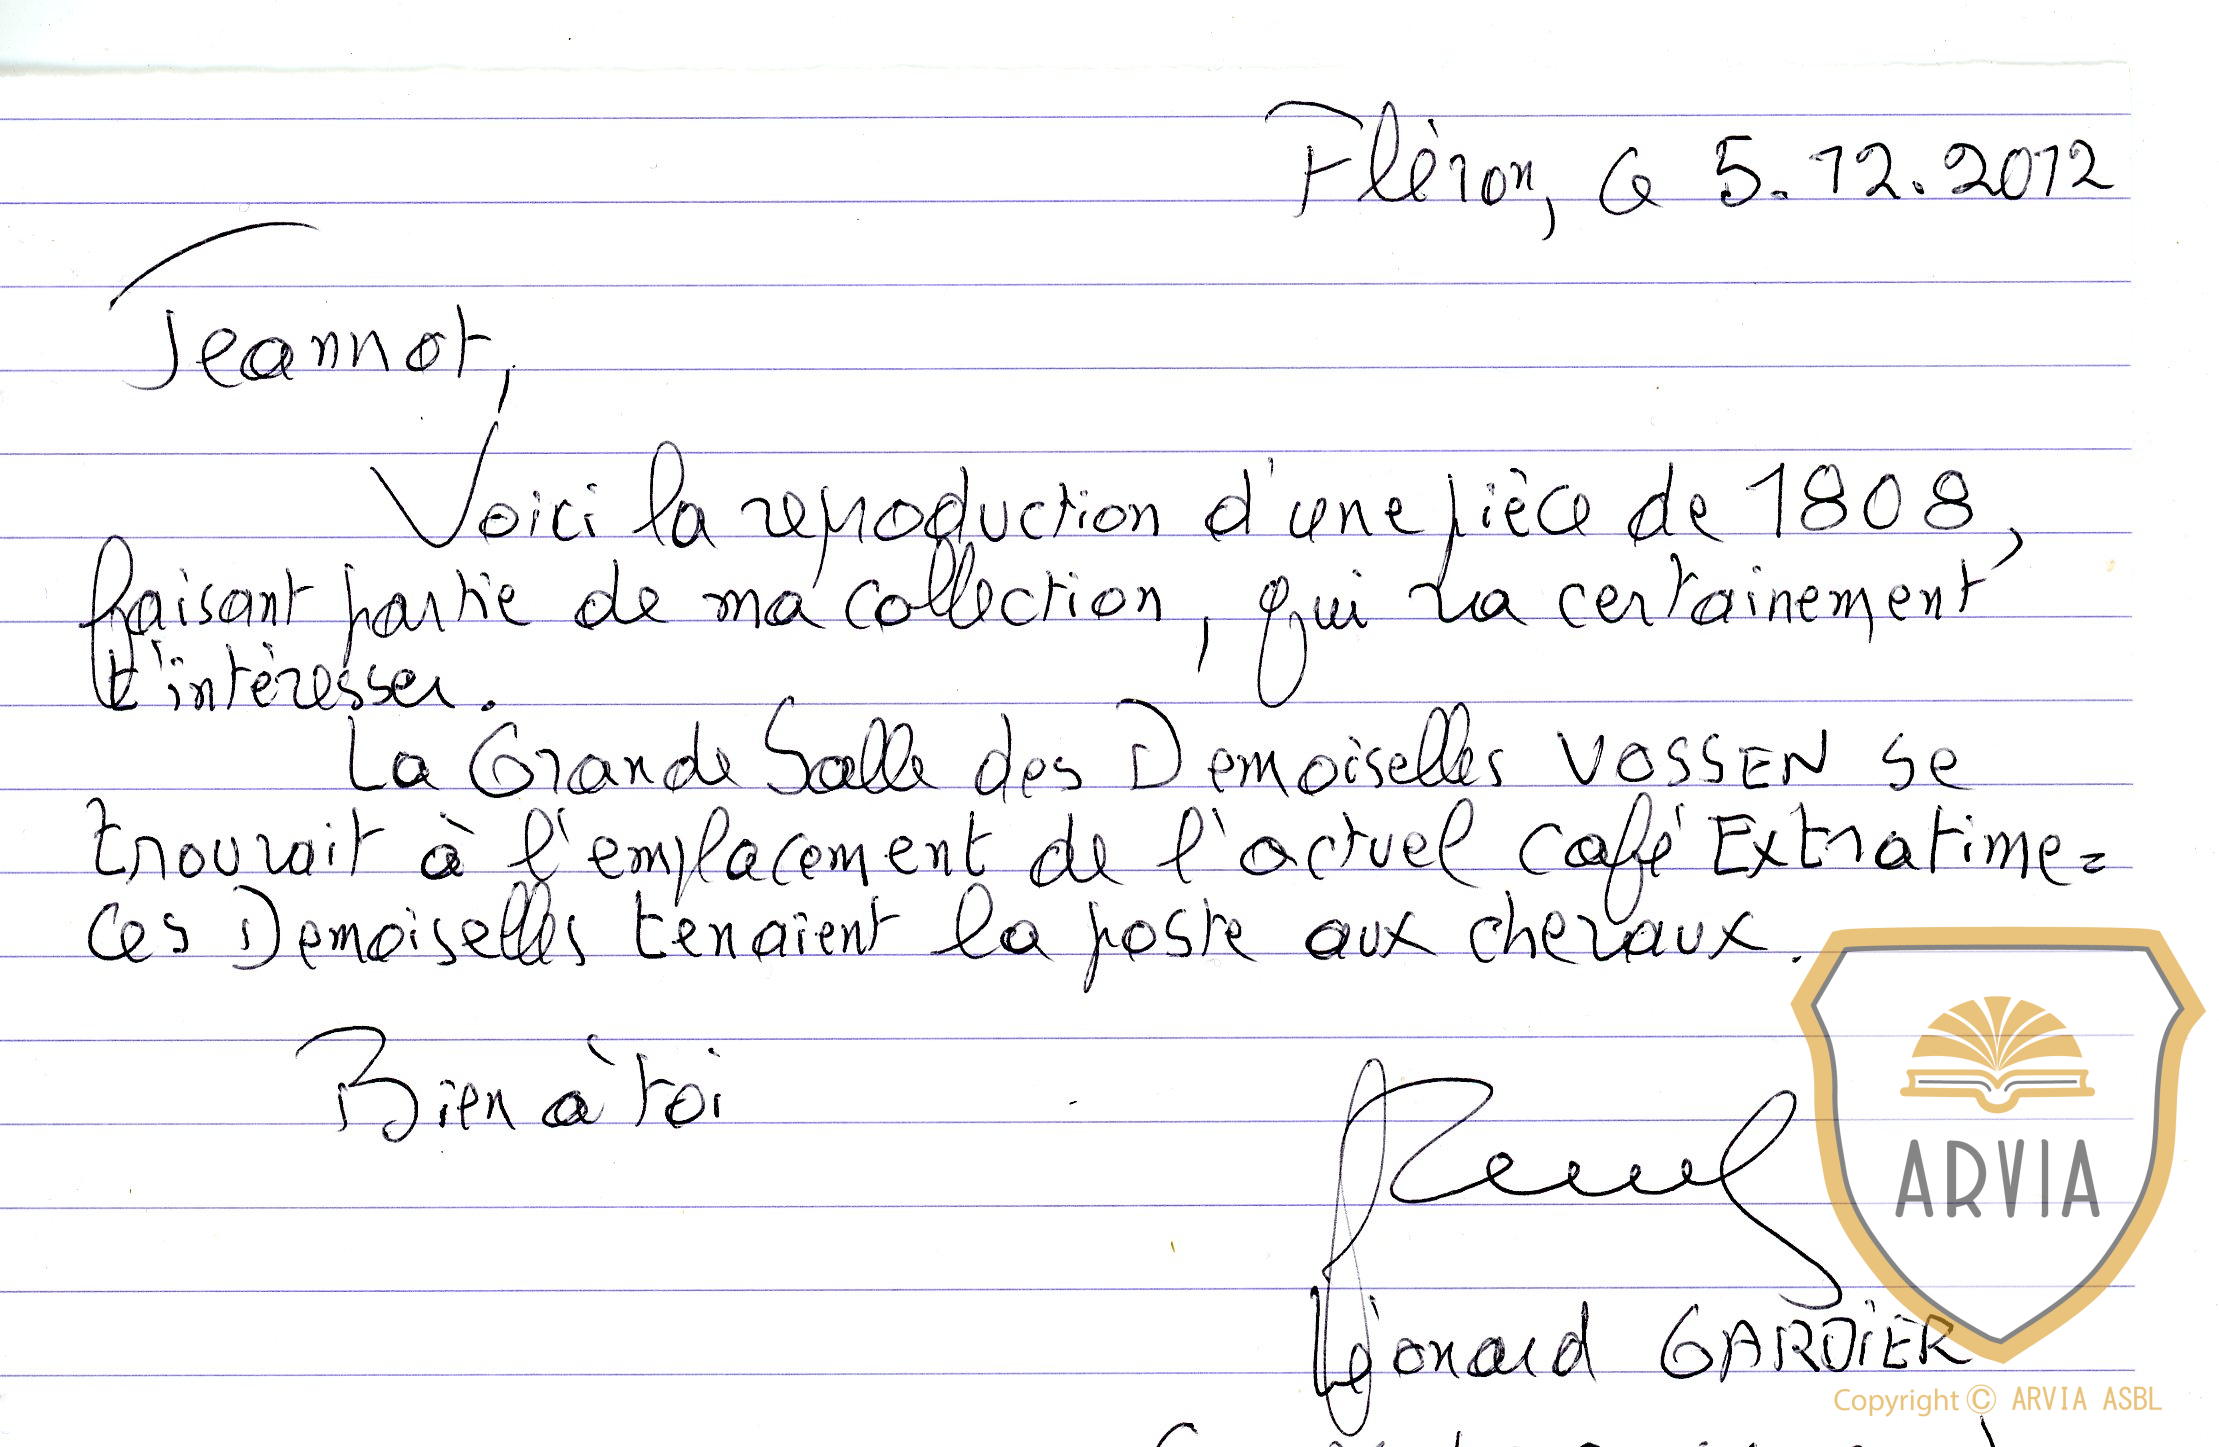 Fléron, le 5.12.2012
Jeannot,
Voici la reproduction d'une pièce de 1808,
faisant partie de ma collection, qui va certainement
t'intéresser.
La Grande Salle des Demoiselles VOSSEN se
trouvait à l'emplacement de l'actuel café Extratime =
ces Demoiselles tenaient la poste aux chevaux.
Bien à toi
Léonard GARDIER
ARVIA
Copyright © ARVIA ASBL